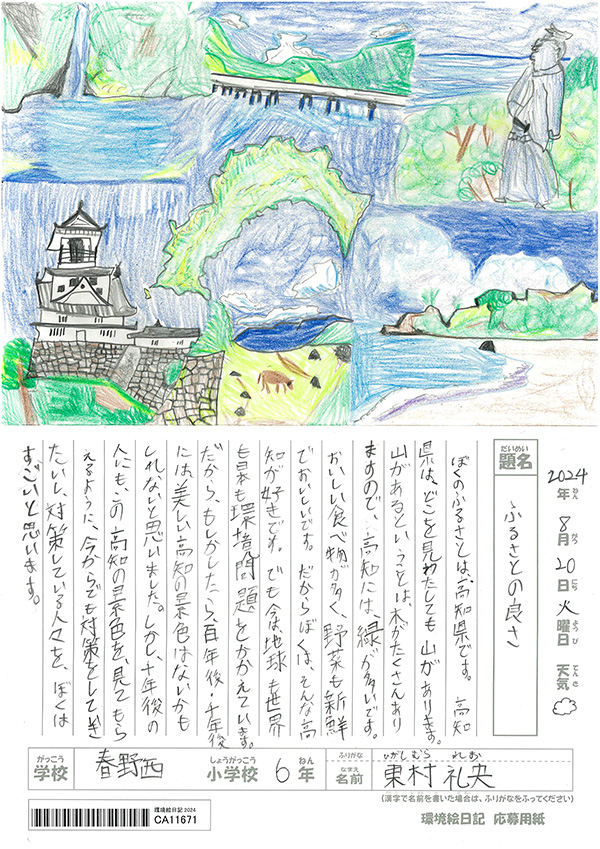 2024年 8月 20日 火曜日 天気
ねん がつ にち ようび てんき
だいめい
題名 ふるさとの良さ
ぼくのふるさとは、高知県です。高知
県は、どこを見わたしても山があります。
山があるということは、木がたくさんあり
ますので、高知には、緑が多いです。
おいしい食べ物が多く、野菜も新鮮
でおいしいです。だからぼくは、そんな高
知が好きです。でも今は、地球も世界
も日本も環境問題をかかえています。
だから、もしかしたら、百年後・千年後
には、美しい高知の景色はないかも
しれないと思いました。しかし、千年後の
人にも、この高知の景色を、見てもら
えるように、今からでも対策をしていき
たいし、対策している人々を、ぼくは
すごいと思います。
がっこう しょうがっこう ねん ふりがな ひがしむら れお
学校 春野西 小学校 6年 なまえ 名前 東村 礼央
(漢字で名前を書いた場合は、ふりがなをふってください)
環境絵日記 2024
CA11671
環境絵日記 応募用紙